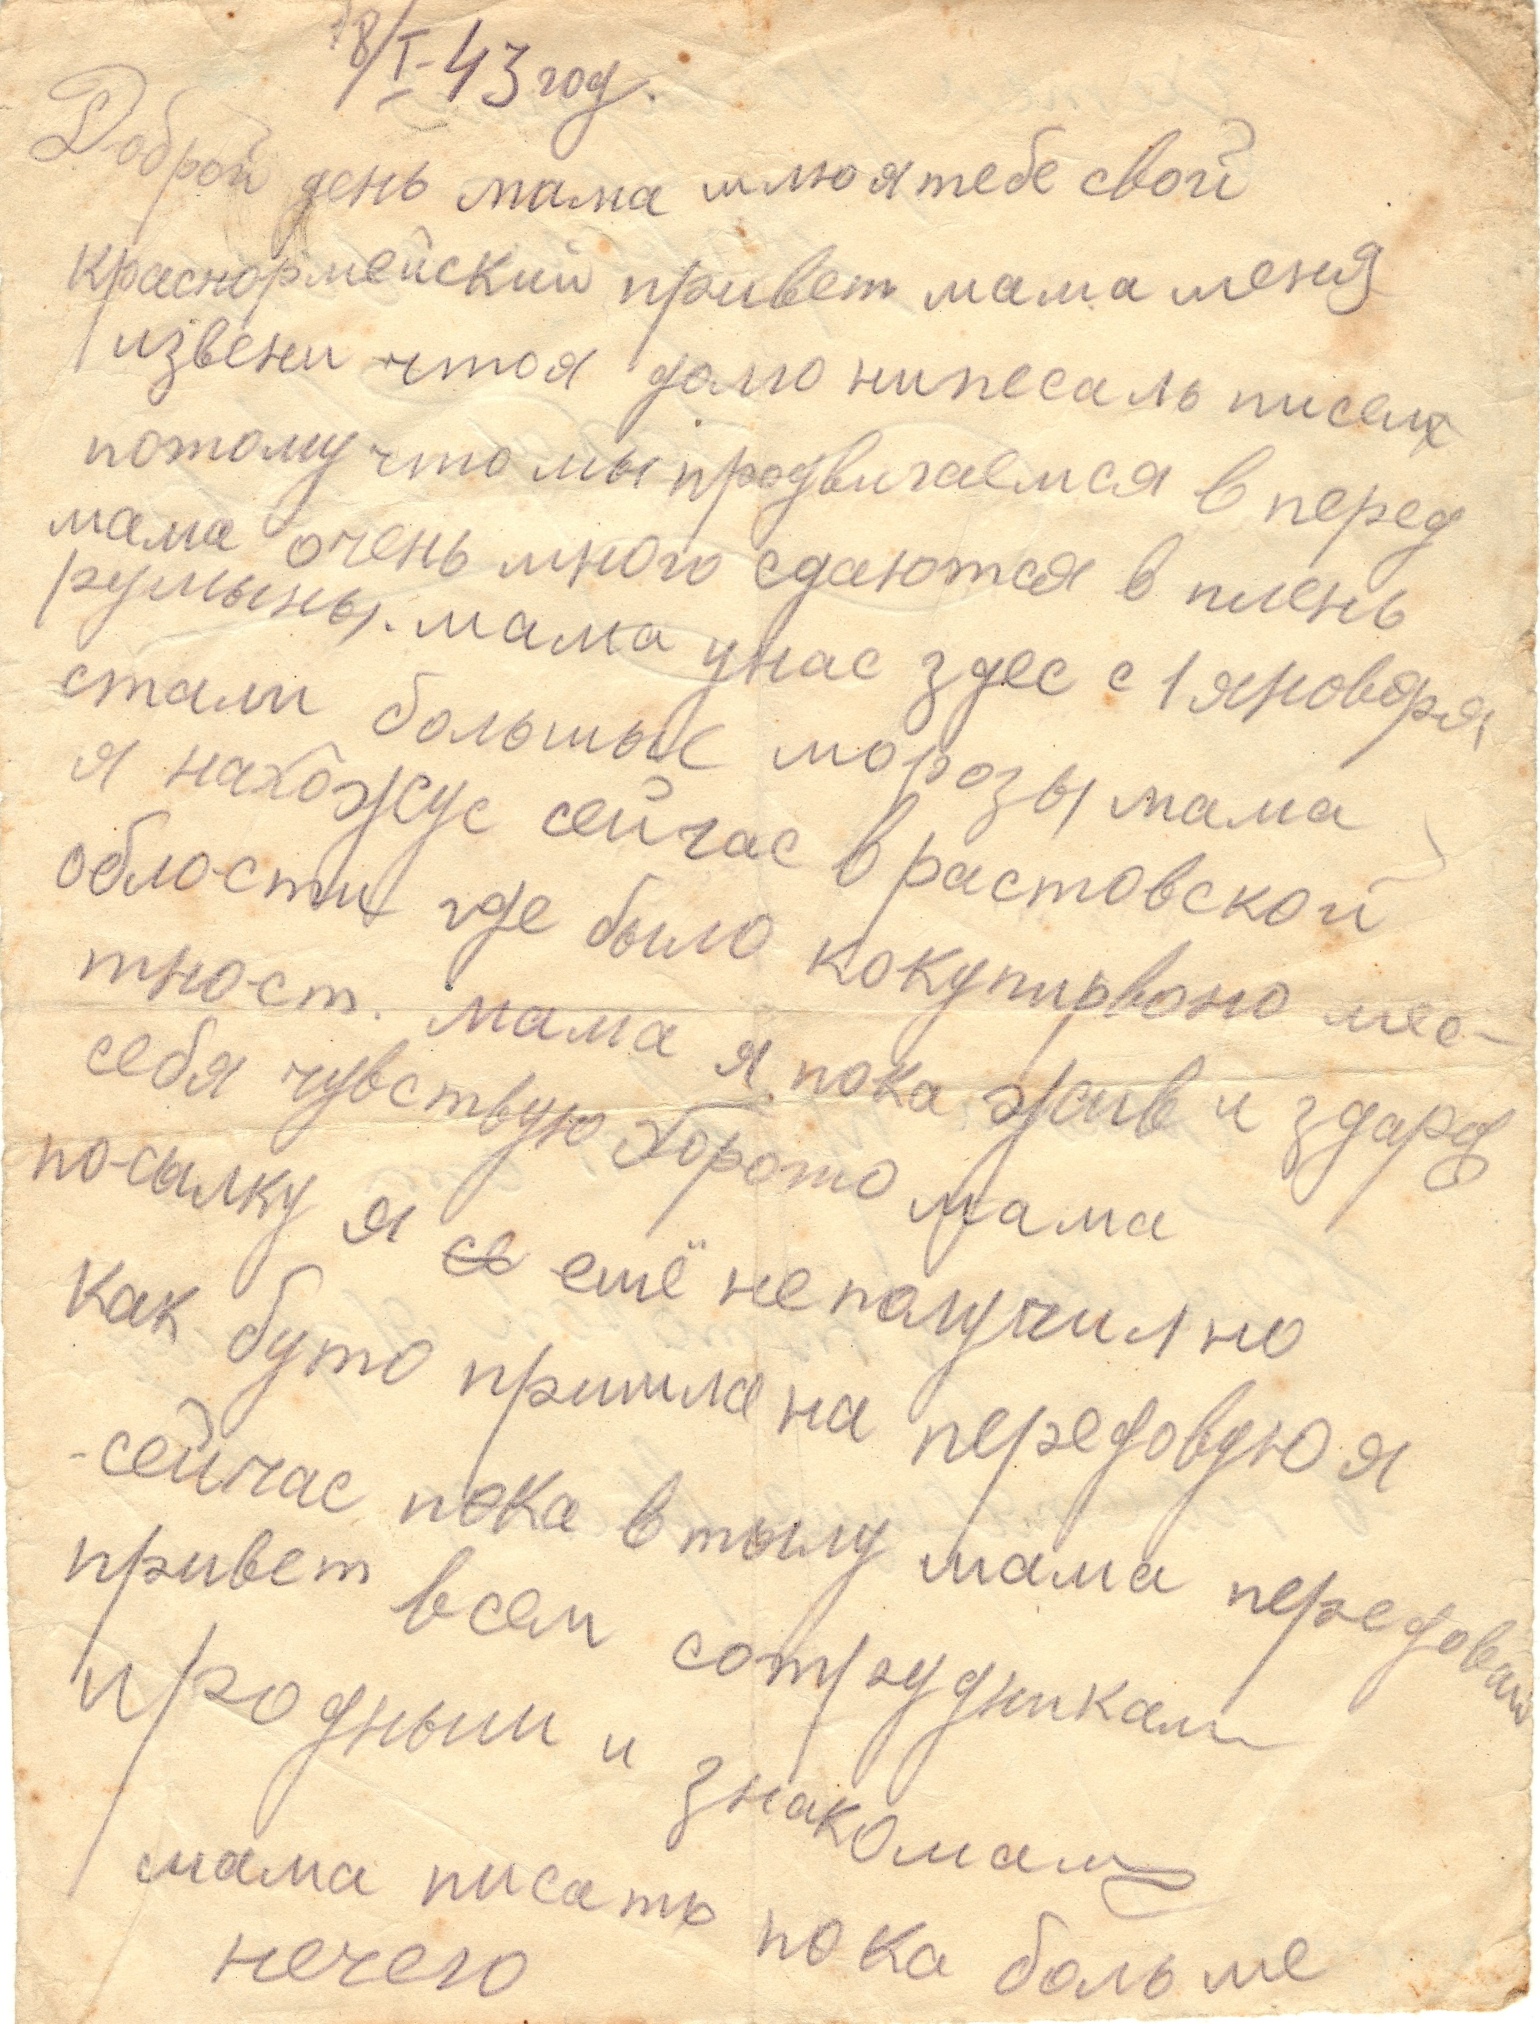 18/I-43 год.
Доброй день мама шлю я тебе свой
красноормейский привет мама меня
извени что я долго нипесаль писем
потому что мы продвигаемся в перед
мама очень много сдаются в плень
румыны. мама у нас здес с 1 яноворя
стали большые морозы мама
я нахожус сейчас в растовской
облости где было кокупирвоно мес-
тност. мама я пока жив и здаров
себя чувствую хорошо мама
посылку я ешё не получил но
как буто пришла на передовую я
сейчас пока в тылу мама передовай
привет всем сотрудникам
и родным и знакомам
мама писать пока больше
нечего